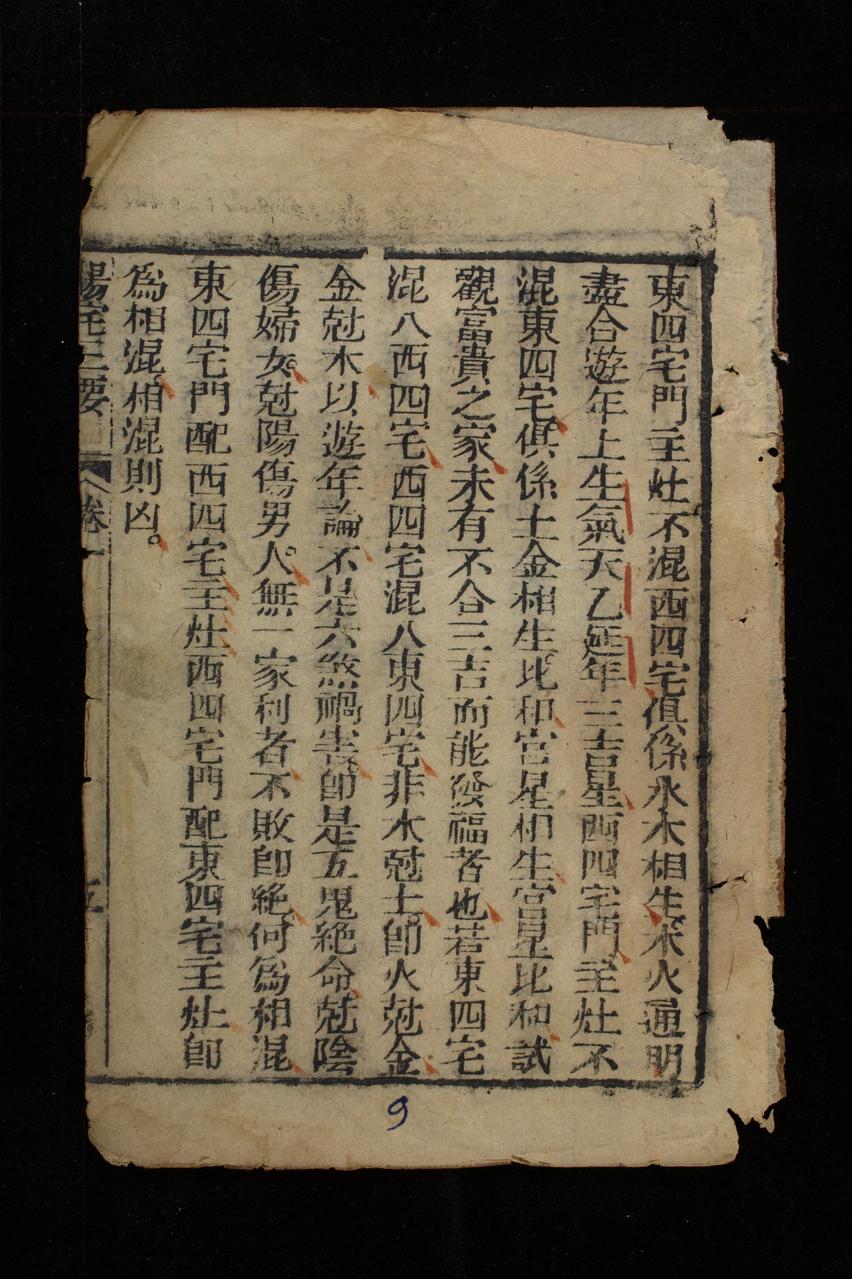 東四宅門主灶不混西四宅俱係水木相生木火通明
盡合遊年上生氣天乙延年三吉星西四宅門主灶不
混東四宅俱係土金相生比和宮星相生宮星比和試
觀富貴之家未有不合三吉而能發福者也若東四宅
混入西四宅西四宅混入東四宅非木尅土。即火尅金
金尅木以遊年論不是六煞禍害即是五鬼絕命。尅陰
傷婦女。尅陽傷男人。無一家利者不敗即絕何為相混
東四宅門配西四宅主灶西四宅門配東四宅主灶即
為相混。相混則凶。
陽宅三要 卷一 五
9